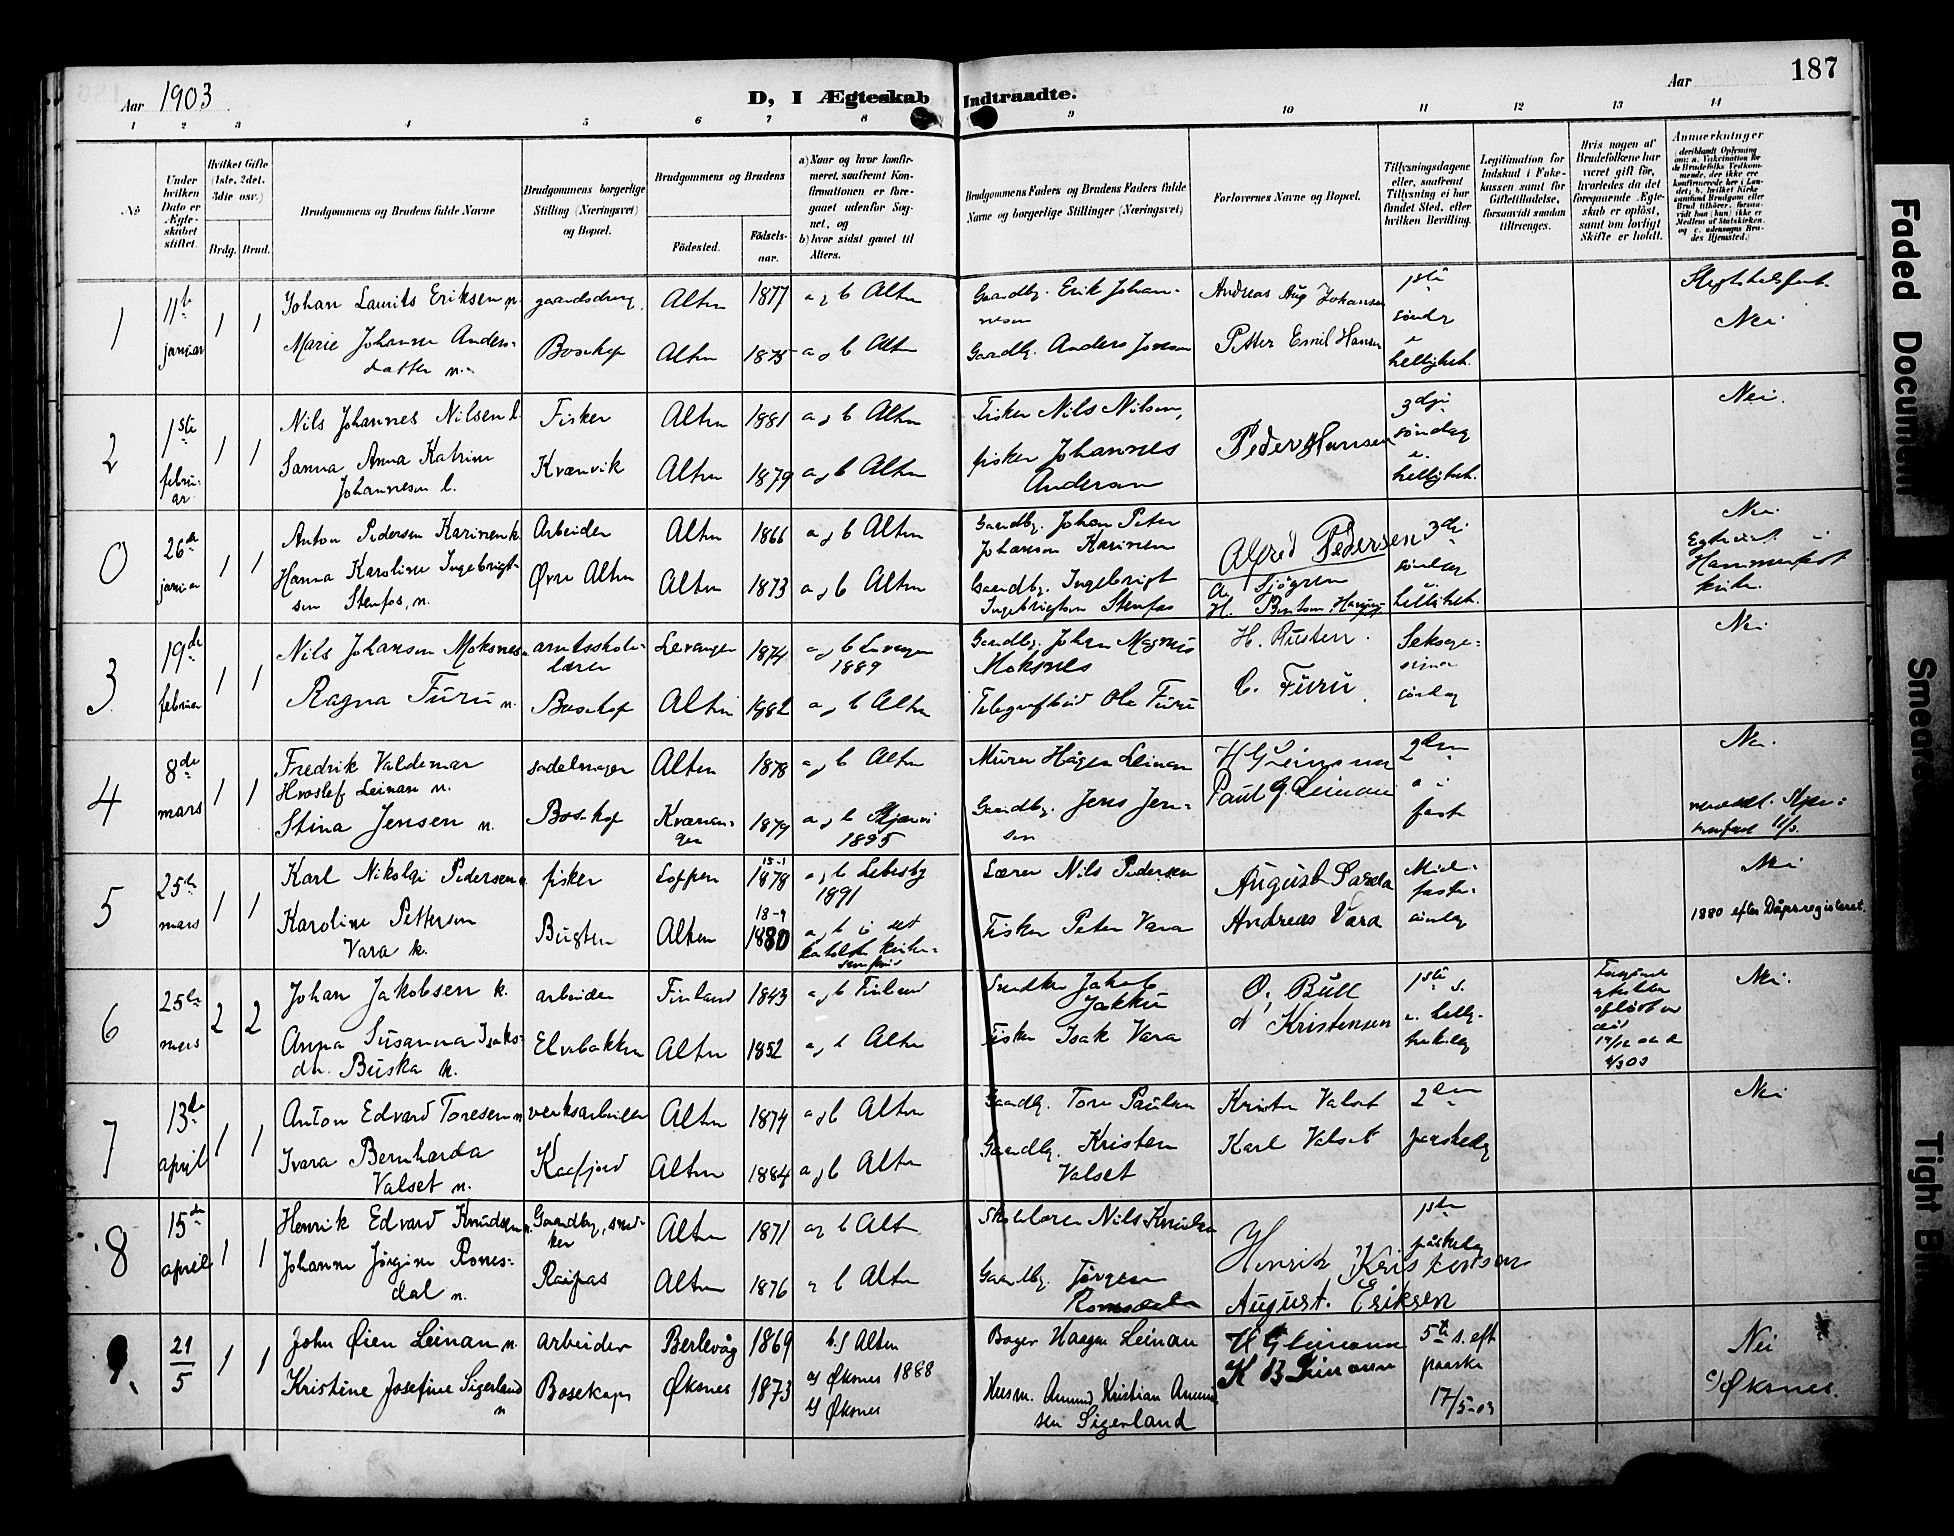 Aar 1903
D, I Ægteskab Indtraadte.
Aar
187
1 2 3 4 5 6 7 8 9 10 11 12 13 14
No
Under hvilken Dato er Ægteskabet stiftet.
Hvilket Gifte (1ste, 2det, 3die osv.)
Brdg. Brud.
Brudgommens og Brudens fulde Navne
Brudgommens borgerlige Stilling (Næringsvei) og Bopæl.
Brudgommens og Brudens
Fødested.
Fødselsaar.
a) Naar og hvor konfirmeret, saafremt Konfirmationen er foregaaet udenfor Sognet, og
b) hvor sidst gaaet til Alters.
Brudgommens Faders og Brudens Faders fulde Navne og borgerlige Stillinger (Næringsvei)
Forlovernes Navne og Bopæl.
Tillysningsdagene eller, saafremt Tillysning ei har fundet Sted, efter hvilken Bevilling.
Legitimation for Indskud i Enkekassen samt for Giftetilladelse, forsaavidt saadan tiltrænges.
Hvis nogen af Brudefolkene har været gift før, hvorledes da det foregaaende Ægteskab er opløst, samt om lovligt Skifte er holdt.
Anmerkninger
1
11te januar
1 1
Johan Laurits Eriksen n.
Marie Johanne Andersdatter n.
gaardsdreng
Bosekop
Alten 1877 a og b Alten
Alten 1875 a og b Alten
Gaardbr. Erik Johannesen
Gaardbr. Anders Jonsen
Andreas Aug Johansen
Petter Emil Hansen
1ste
søndag
e
helligtrek.
Nei
2
1ste februar
1 1
Nils Johannes Nilsen l.
Sanna Anna Katrine Johannesen l.
Fisker
Kvænvik
Alten 1881 a og b Alten
Alten 1879 a og b Alten
Fisker Nils Nilsen,
fisker Johannes Andersen
Peder Hansen
3dje
søndag
e.
helligtrek.
Nei.
0
26de januar
1 1
Anton Pedersen Karinen k.
Hanna Karoline Ingebrigtsen Stenfos, n.
Arbeider
Øvre Alten
Alten 1866 a og b Alten
Alten 1873 a og b Alten
Gaardbr. Johan Peter Johansen Karinen
Gaardbr. Ingebrigt Ingebrigtsen Stenfos
Alfred Pedersen
3dje
søndag
e.
helligtrek.
Nei
Egteviet i
Hammerfest
kirke.
3
19de februar
1 1
Nils Johansen Moksnes n.
Ragna Furu n.
amtsskolelærer
Bosekop
Levanger 1874 a og b Levanger 1889
Alten 1882 a og b Alten
Gaardbr. Johan Magnus Moksnes
Telegrafbud Ole Furu
H. Rusten.
C. Furu
Seksagesima
søndag
Nei
4
8de mars
1 1
Fredrik Valdemar Hvoslef Leinan n.
Stina Jensen n.
sadelmager
Bosekop
Alten 1878 a og b Alten
Kvænangen 1879 a og b Skjervø 1895
Murer Hågen Leinan
Gaardbr. Jens Jensen
H G Leinan
Paul G. Leinan
2den
s. i
faste
Nei.
5
25de mars
1 1
Karl Nikolai Pedersen n.
Karoline Pettersen Vara k.
fisker
Bugten
Loppen 15-1 1878 a og b Lebesby 1891
Alten 18-9 1880 a og b i det katolske kirkesamfund
Lærer Nils Pedersen
Fisker Peter Vara
August Sarela
Andreas Vara
Midfastesøndag
Nei
1880 efter Dåpsregisteret.
6
25de mars
2 2
Johan Jakobsen k.
Anna Susanna Isaksdr. Buska k.
arbeider
Elvebakken
Finland 1843 a og b Finland
Alten 1852 a og b Alten
Snedker Jakob Jakku
Fisker Isak Vara
O. Bull
Kristensen
1ste s.
Nei.
7
13de april
1 1
Anton Edvard Toresen n.
Ivara Bernharda Valset n.
verksarbeider
Kaafjord
Alten 1874 a og b Alten
Alten 1884 a og b Alten
Gaardbr. Tore Paulsen
Gaardbr. Kristen Valset
Kristen Valset
Karl Valset
2den
paaskedag
Nei
8
15de april
1 1
Henrik Edvard Knudsen n.
Johanne Jørgine Romsdal n.
Gaardbr, snedker
Raipas
Alten 1871 a og b Alten
Alten 1876 a b Alten
Skolelærer Nils Knudsen
Gaardbr. Jørgen Romsdal
Henrik Kristensen
August. Eriksen
1ste
påskedag
9.
21/5
1 1
John Øien Leinan n.
Kristine Josefine Sigerland n
arbeider
Bosekop
Berlevåg 1869 b) Alten
Øksnes 1873 a) Øksnes 1888
b) Øksnes
Bager Haagen Leinan
Husm. Amund Kristian Amundsen Sigerland
H G Leinan
K B Leinan
5te s. eft
paaske
17/5-03
Nei
c) Øksnes.
Faded Document
Smeared
Tight Bin